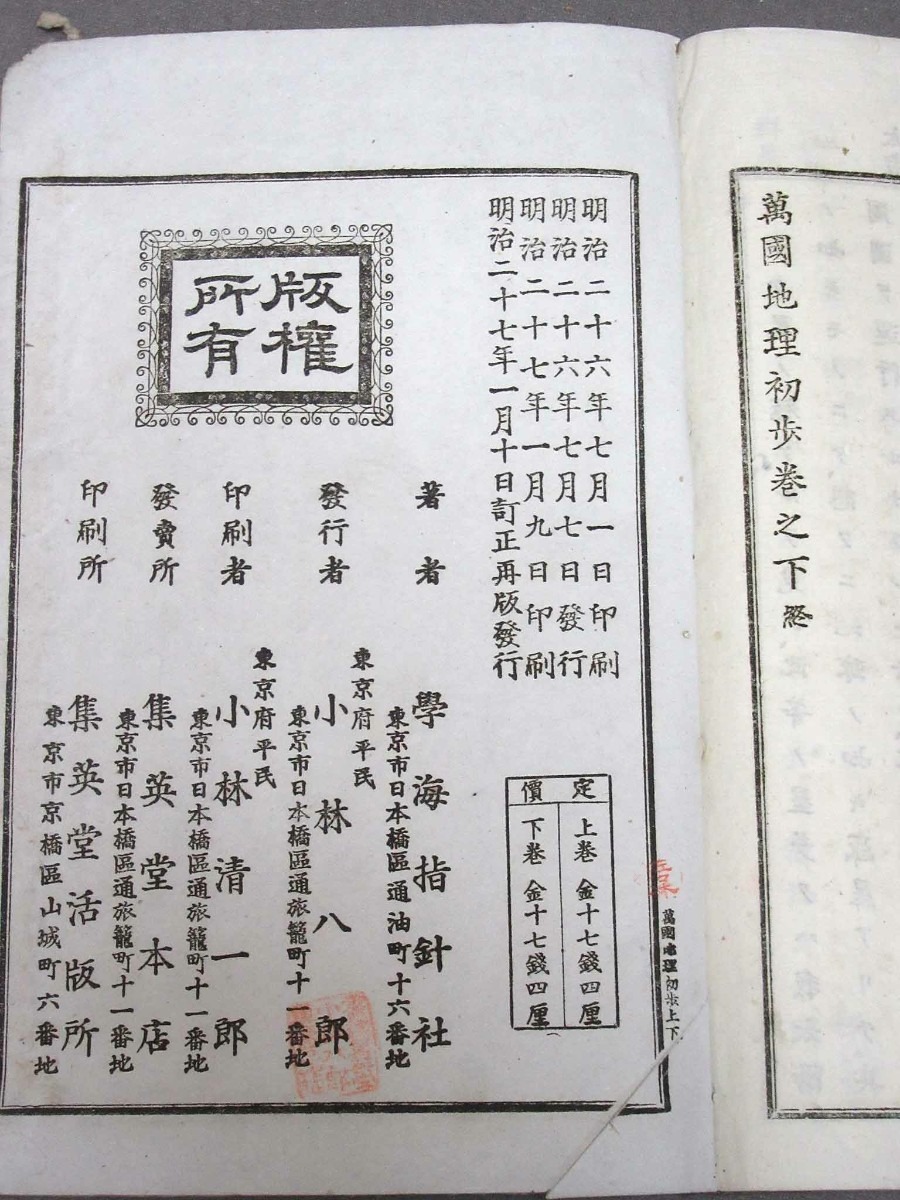 萬國地理初歩巻之下終
明治二十六年七月一日印刷
明治二十六年七月七日發行
明治二十七年一月九日印刷
明治二十七年一月十日訂正再版發行
定價
上巻金十七錢四厘
下巻金十七錢四厘
萬國地理初歩上下
版權
所有
著者
東京市日本橋區通油町十六番地
學海指針社
發行者
東京府平民
小林八郎
東京市日本橋區通旅籠町十一番地
印刷者
東京府平民
小林清一郎
東京市日本橋區通旅籠町十一番地
發賣所
集英堂本店
東京市日本橋區通旅籠町十一番地
印刷所
集英堂活版所
東京市京橋區山城町六番地